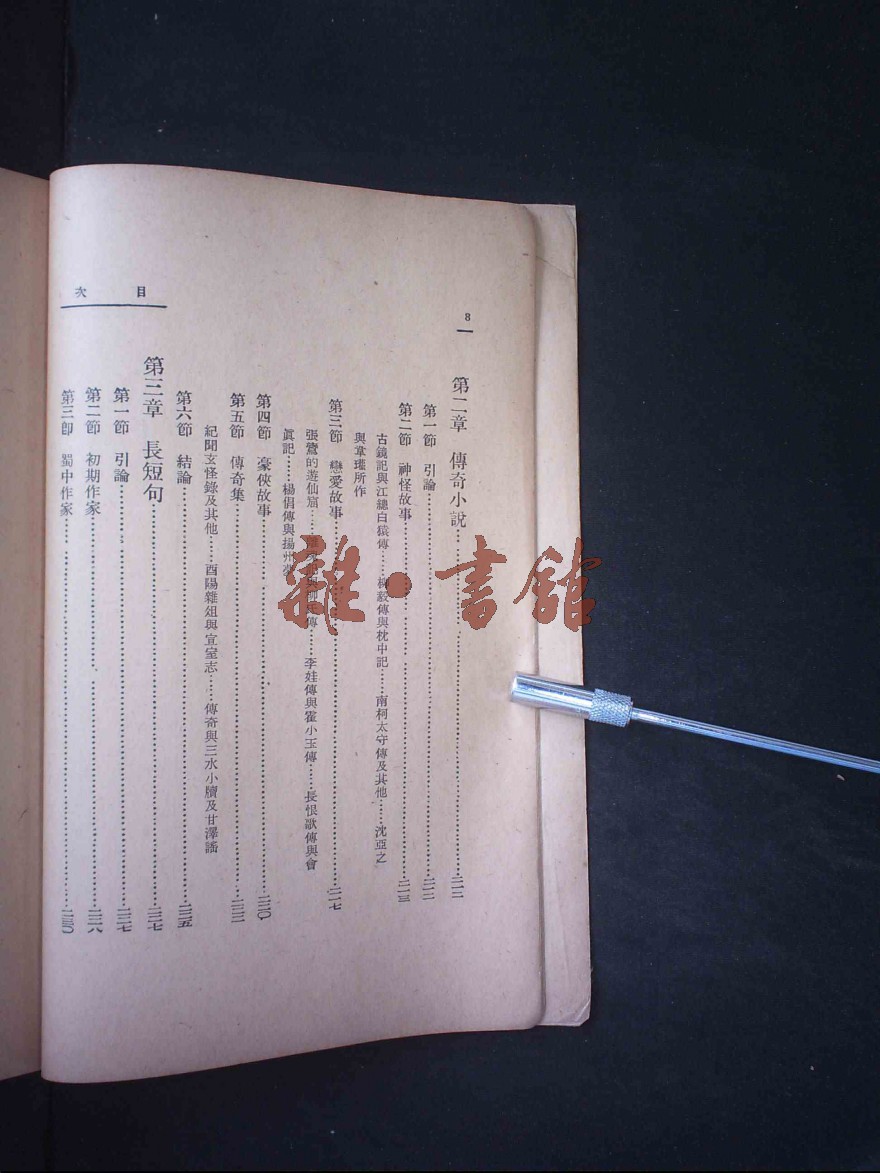 目次
8
第二章 傳奇小說……二一二
第一節 引論……二一二
第二節 神怪故事……二一三
古鏡記與江總白猿傳……柳毅傳與枕中記……南柯太守傳及其他……沈亞之
與韋瓘所作
第三節 戀愛故事……二一七
張鷟的遊仙窟……與柳氏傳……李娃傳與霍小玉傳……長恨歌傳與會
眞記……楊倡傳與揚州夢
第四節 豪俠故事……二二〇
第五節 傳奇集……二二二
紀聞玄怪錄及其他……酉陽雜俎與宣室志……傳奇與三水小牘及甘澤謠
第六節 結論……二二五
第三章 長短句……二二七
第一節 引論……二二七
第二節 初期作家……二二八
第三節 蜀中作家……二三〇
雜·書館